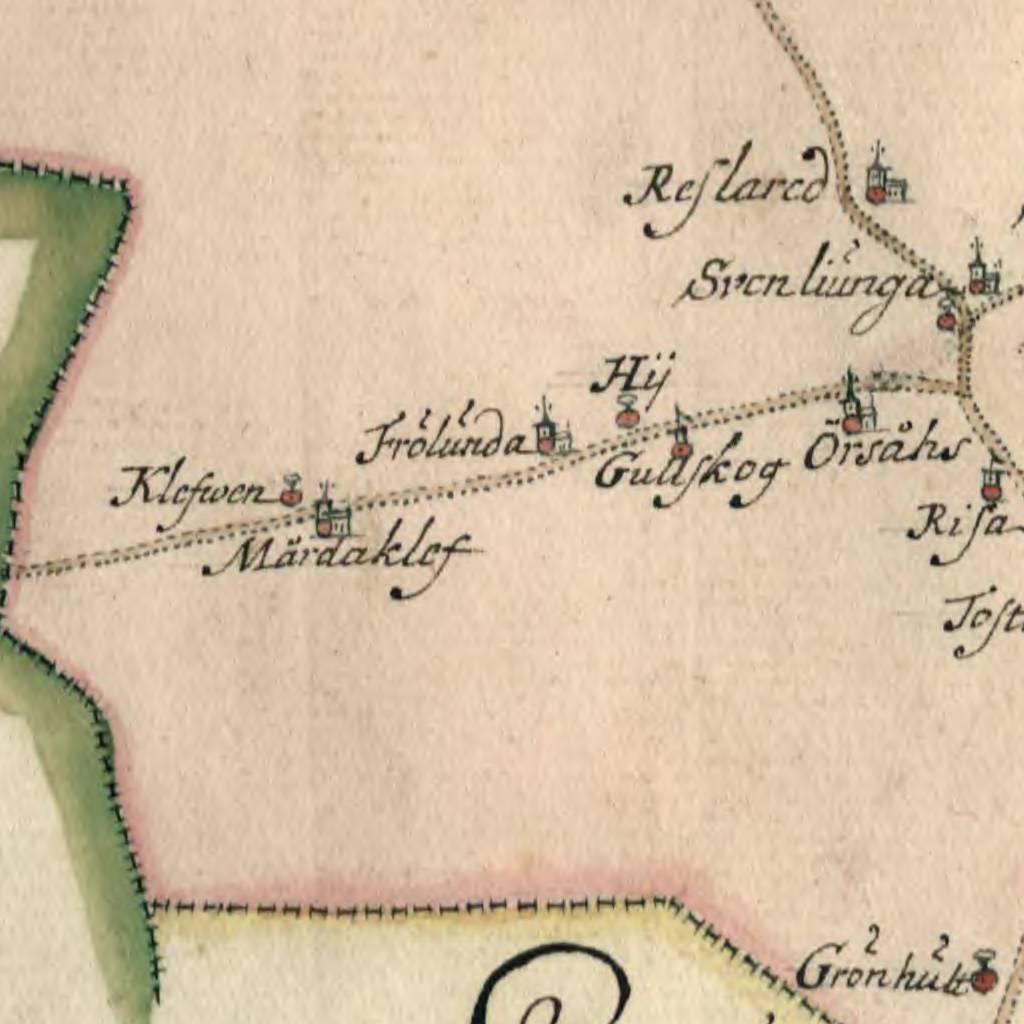 Reslared
Svenliunga
Hij
Frölunda
Gullskog
Örsåhs
Klefwen
Risa
Märdaklef
Grönhult